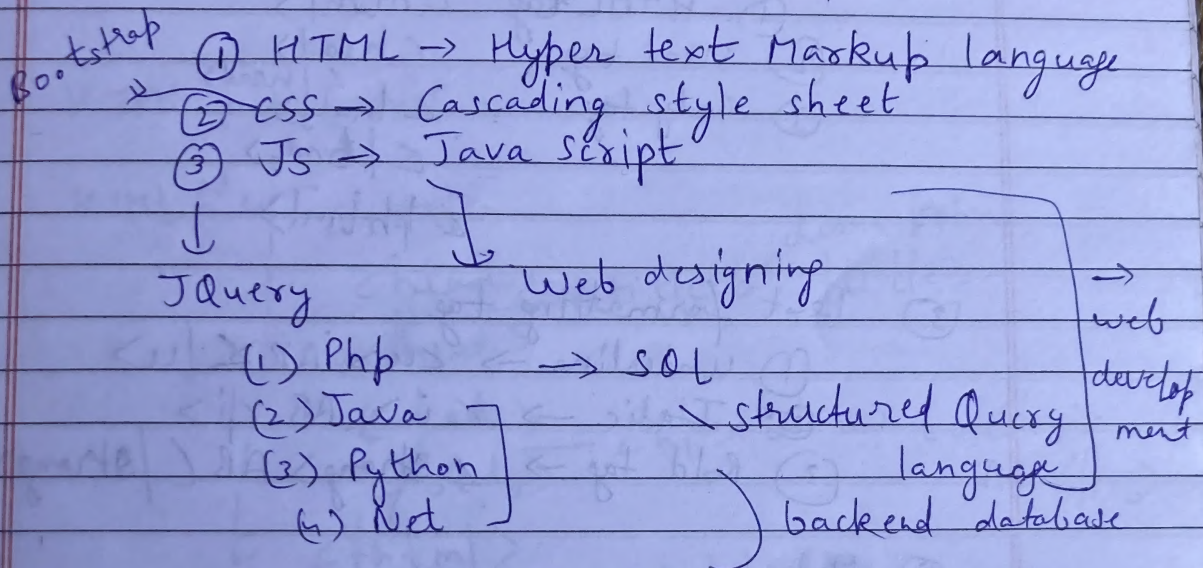 Bootstrap
① HTML → Hyper text Markup language
② CSS → Cascading style sheet
③ JS → Java Script
↓
JQuery
Web designing
→ web development
(1) Php → SQL
(2) Java
Structured Query language
(3) Python
(4) Net
backend database